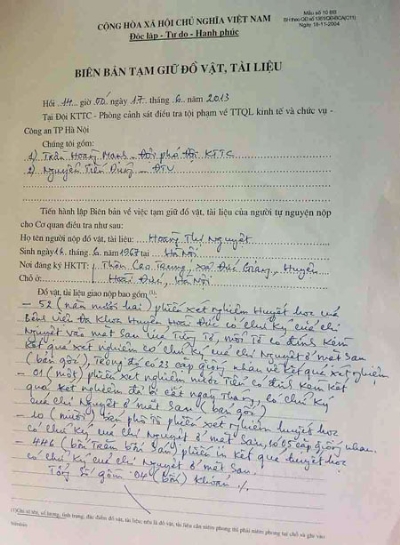 CỘNG HÒA XÃ HỘI CHỦ NGHĨA VIỆT NAM
Độc lập - Tự do - Hạnh phúc
Mẫu số 10 BB
Ngày 18-11-2004
BIÊN BẢN TẠM GIỮ ĐỒ VẬT, TÀI LIỆU
Hồi 14 giờ 00 ngày 17 tháng 6 năm 2013
Tại Đội KTTC - Phòng cảnh sát điều tra tội phạm về TTQL kinh tế và chức vụ -
Công an TP Hà Nội
Chúng tôi gồm:
1) Trần Hoàng Manh - Đội phó Đội KTTC
2) Nguyễn Tiến - ĐTV
Tiến hành lập Biên bản về việc tạm giữ đồ vật, tài liệu của người tự nguyện nộp
cho Cơ quan điều tra như sau:
Họ tên người nộp đồ vật, tài liệu: Hoàng Thị Nguyệt
Sinh ngày 16 tháng 6 năm 1967 tại Hà Nội
Nơi đăng ký HKTT: Thôn Cao Trung, xã Đức Giang, Huyện
Chỗ ở: Hoài Đức, Hà Nội
Đồ vật, tài liệu giao nộp bao gồm (1):
- 52 (năm mươi hai) phiếu xét nghiệm Huyết học của
Bệnh viện Đa Khoa Huyện Hoài Đức có chữ ký của chị
Nguyệt vào mặt sau của từng tờ, mỗi tờ có đính kèm
kết quả xét nghiệm có chữ ký của chị Nguyệt ở mặt sau
(bản gốc). Trong đó có 23 cặp giống nhau về kết quả xét nghiệm
- 01 (một) phiếu xét nghiệm nước tiểu có đính kèm kết
quả xét nghiệm đã bị cắt ngày tháng, có chữ ký
của chị Nguyệt ở mặt sau (bản gốc)
- 10 (mười) bản phô tô phiếu xét nghiệm huyết học
có chữ ký của chị Nguyệt ở mặt sau, có 05 cặp giống nhau.
- 446 (bốn trăm bốn sáu) phiếu in kết quả huyết học
có chữ ký của chị Nguyệt ở mặt sau.
Tổng số gồm 04 (bốn) khoản /.